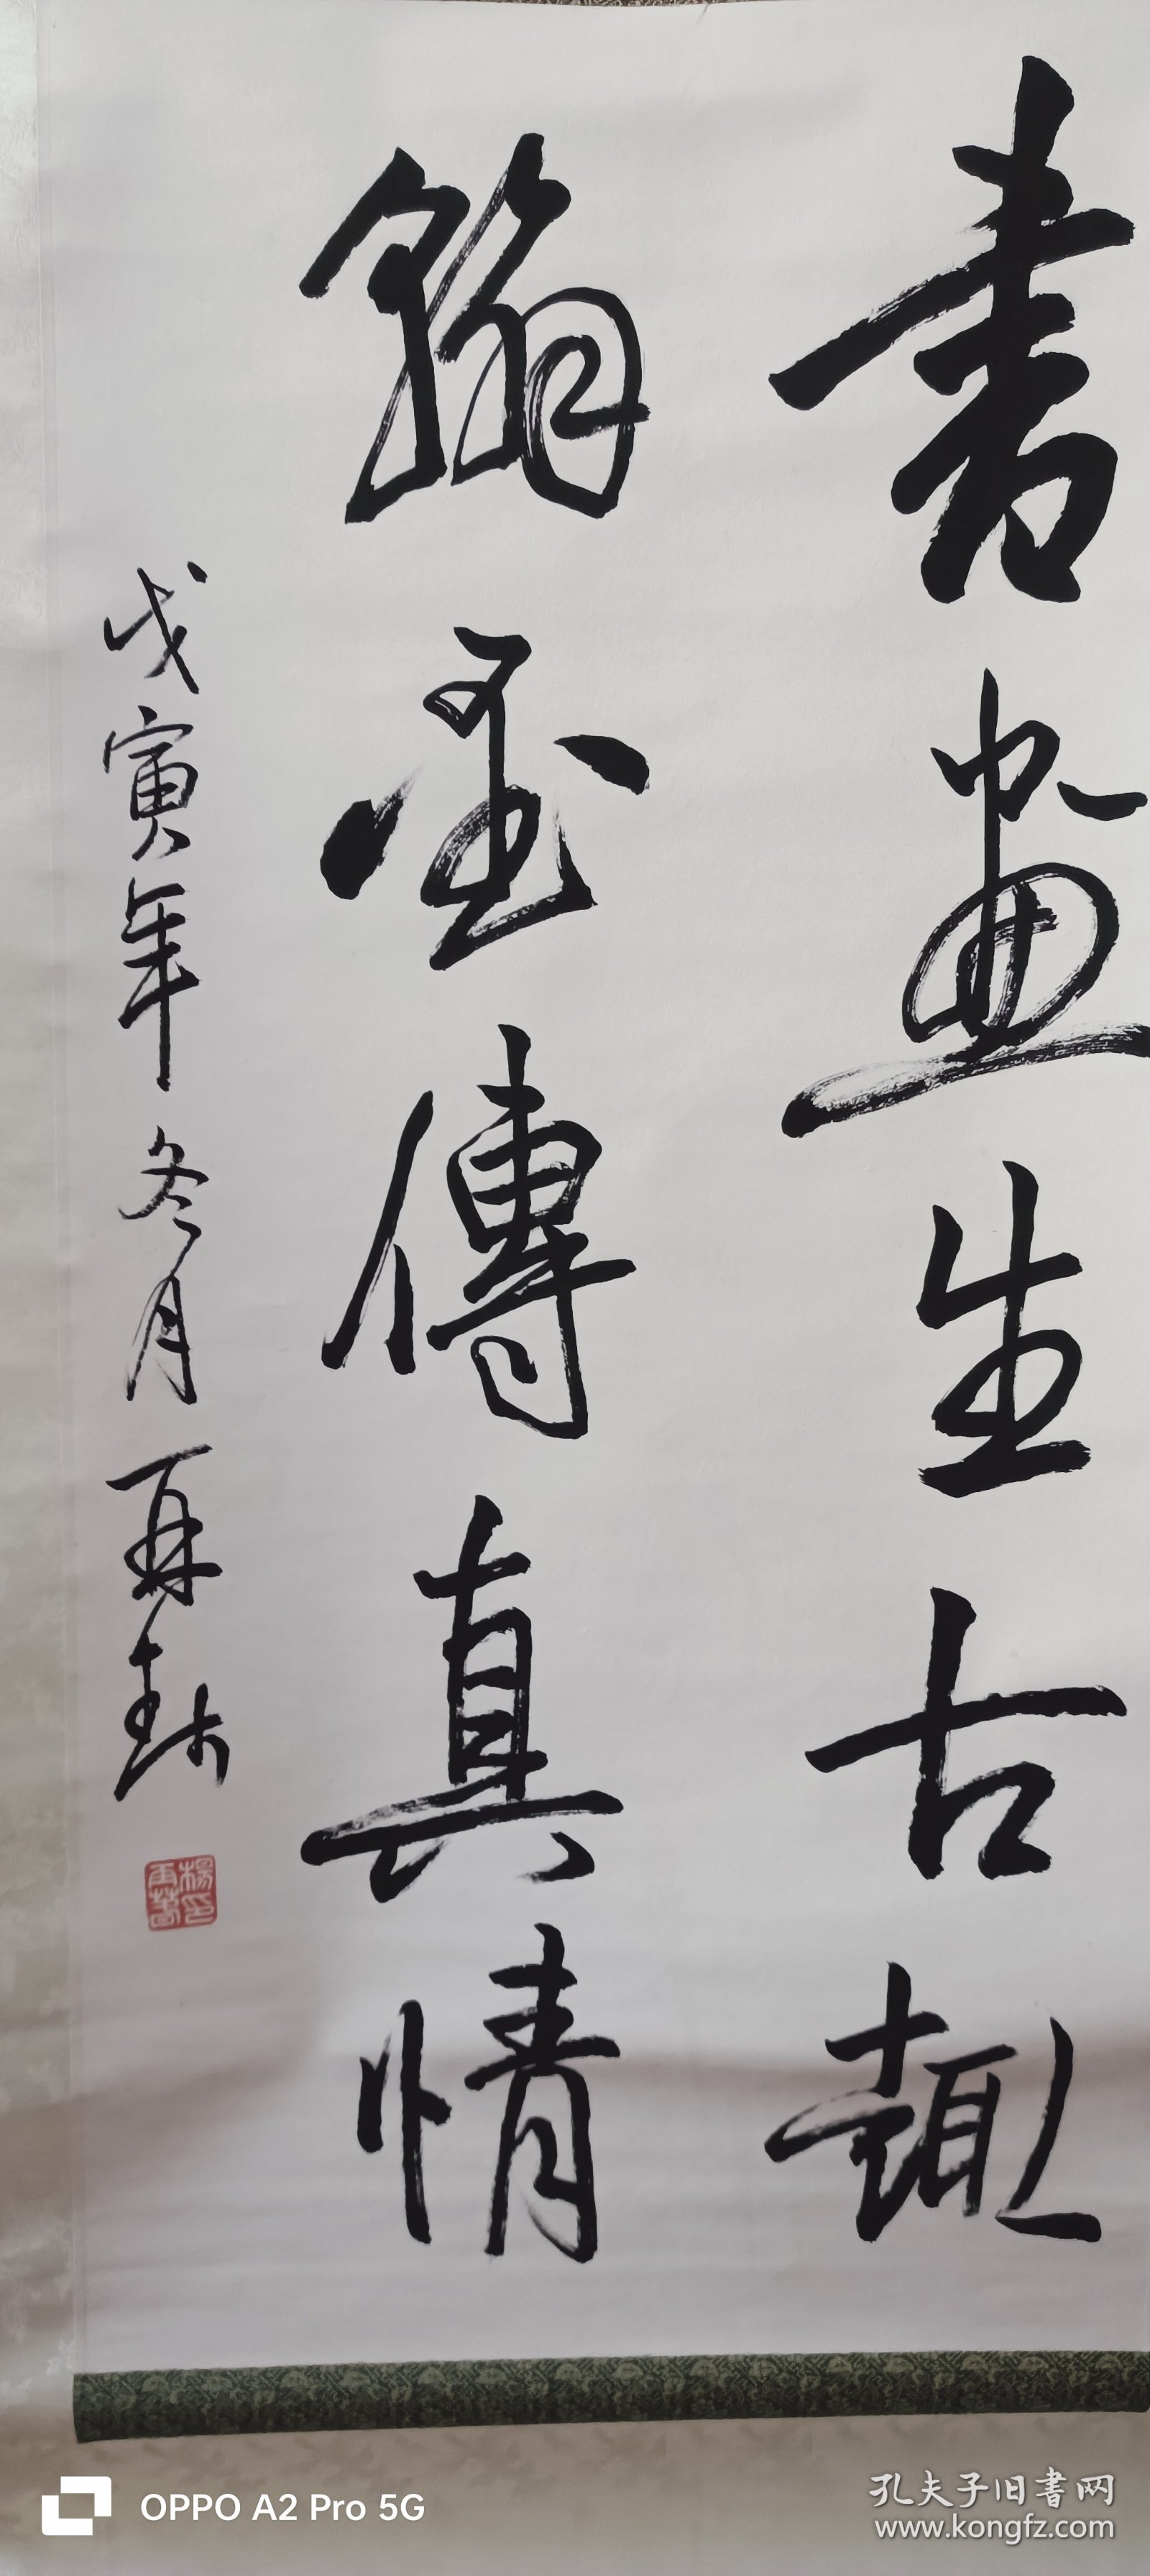 書畫生古趣
翰墨傳真情
戊寅年冬月再春
楊印再春
OPPO A2 Pro 5G
孔夫子旧書网
www.kongfz.com